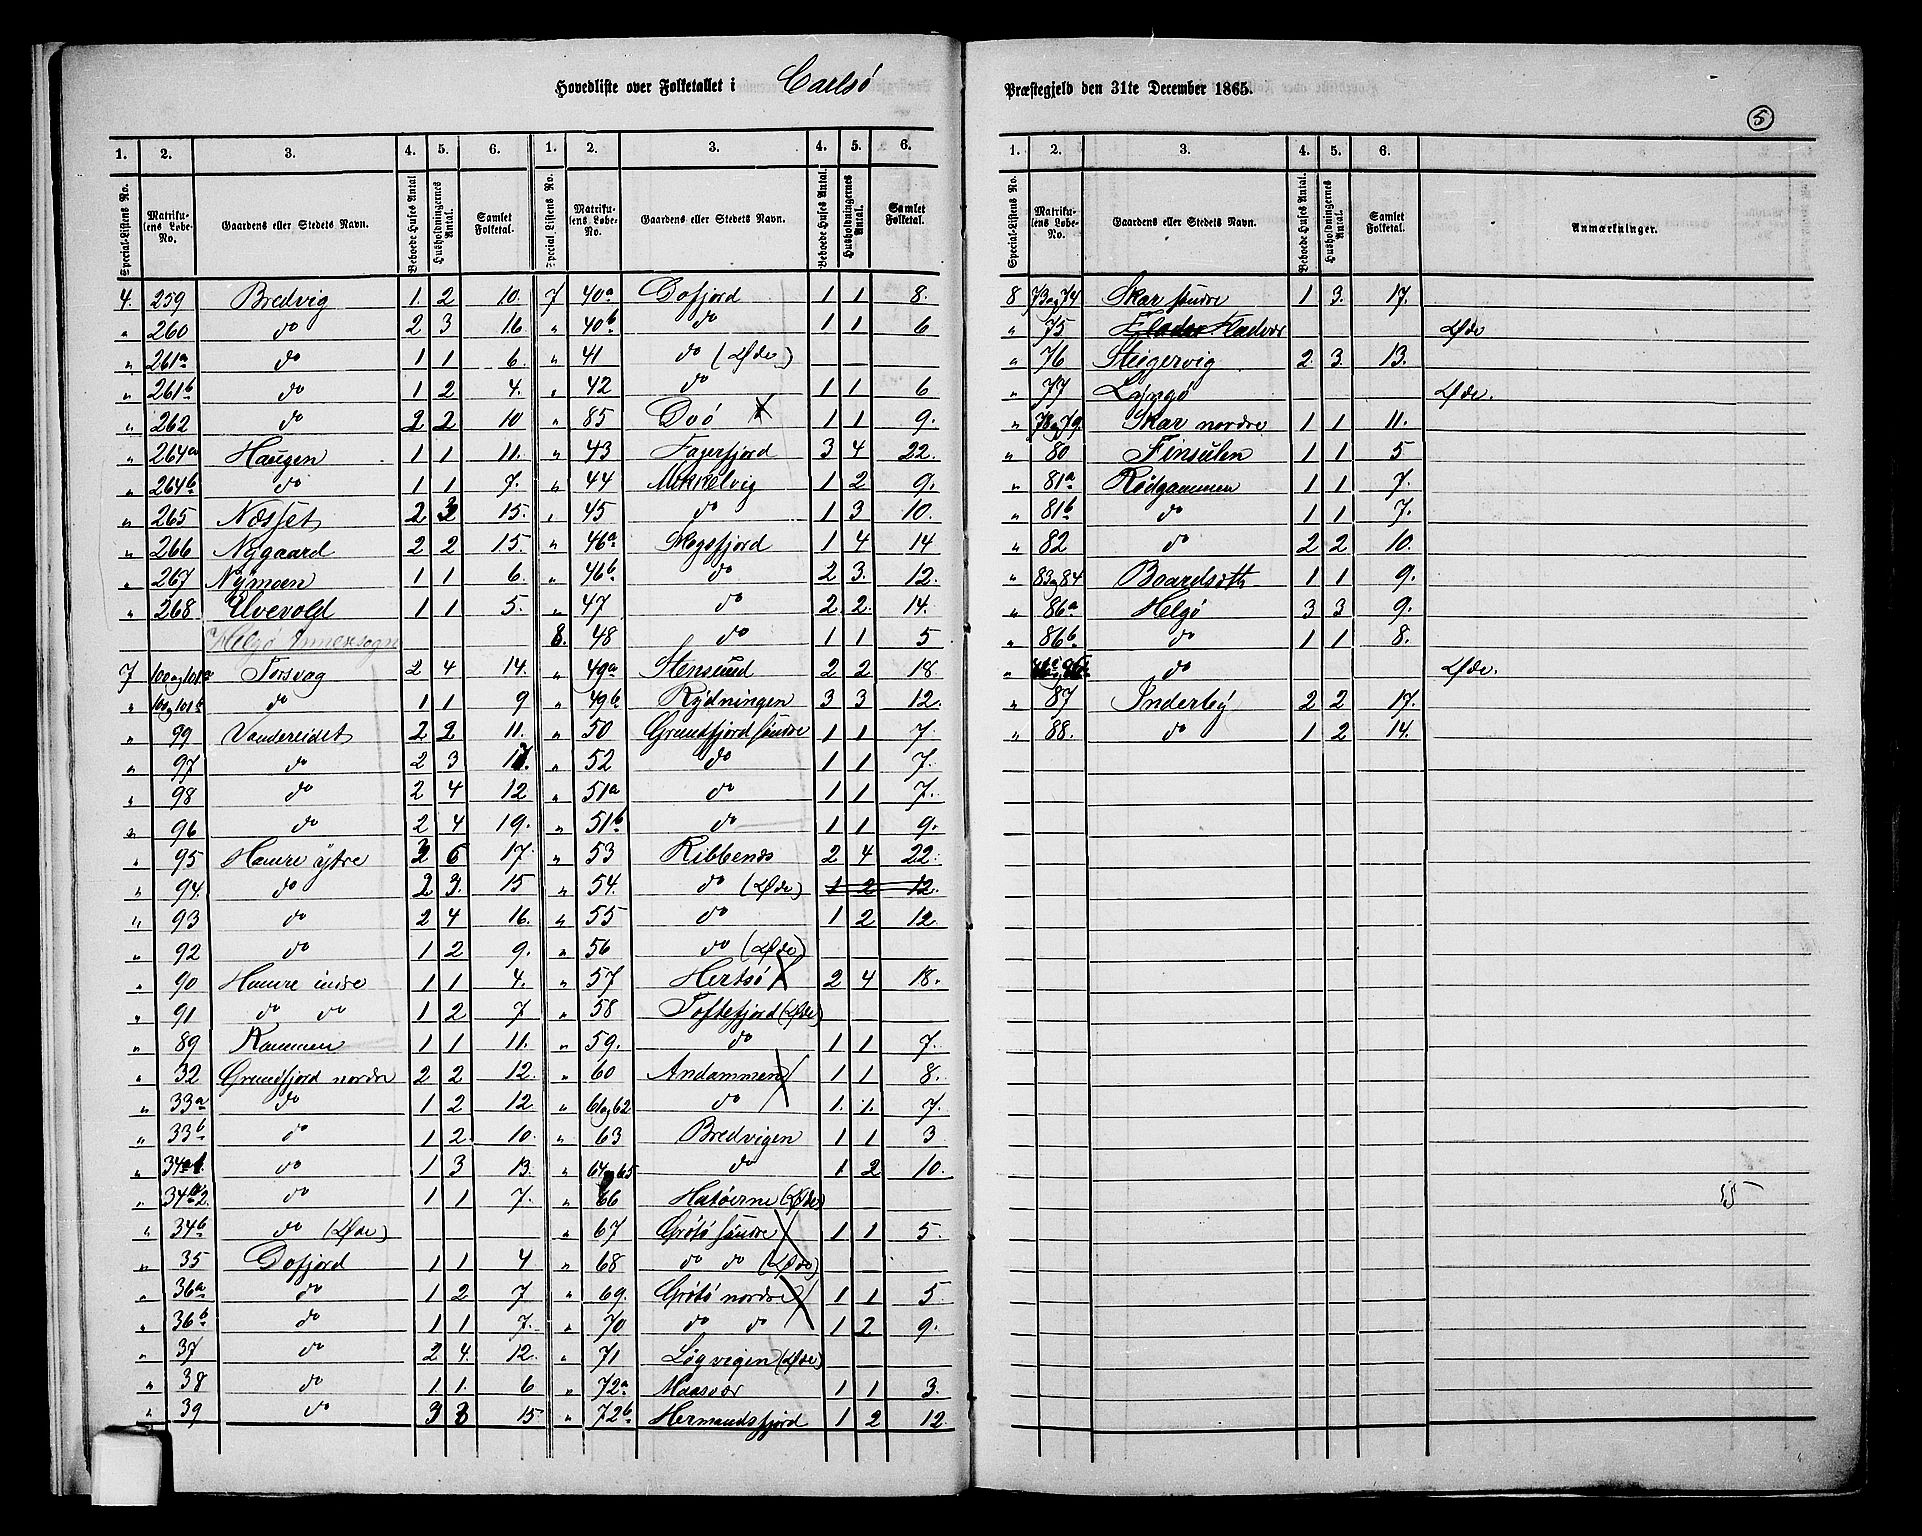 Hovedliste over Folketallet i Carlsö
Præstegjeld den 31te December 1865.
5
1. 2. 3. 4. 5. 6. 1. 2. 3. 4. 5. 6.
Special-Listens No. Matrikulens Løbe-No. Gaardens eller Stedets Navn. Beboede Huses Antal Husholdningernes Antal. Samlet Folketal. Special-Listens No. Matrikulens Løbe-No. Gaardens eller Stedets Navn. Beboede Huses Antal. Husholdningernes Antal. Samlet Folketal.
4. 259 Bredvig 1. 2 10. 7 40a Dofjord 1 1 8.
" 260 do 2 3 16 " 40b do 1 1 6
" 261a do 1 1 6. " 41 do (Øde)
" 261b do 1 2 4. " 42 do 1 1 6
" 262 do 2 2 10 " 85 Doö 1 1 9.
" 264a Haugen 1 1 11. " 43 Fagerfjord 3 4 22.
" 264b do 1 1 7. " 44 Mikkelvig 1 2 9.
" 265 Næsset 2 3 15. " 45 do 1 3 10.
" 266 Nygaard 2 2 15. " 46a Skogsfjord 1 4 14
" 267 Nymoen 1 1 6. " 46b do 2 3. 12.
" 268 Elvevold 1 1 5. " 47 do 2 2. 14.
Helgö Annexsogn 8. 48 do 1 1 5
7 100 og 101a Torsvag 2 4 14. " 49a Stensund 2 2 18
" 100 og 101b do 1 1 9 " 49b Rydningen 3 3 12.
" 99 Vandereidet 2 2 11. " 50 Grundfjord söndre 1 1 7.
" 97 do 2 3 17. " 52 do 1 1 7.
" 98 do 2 4 12 " 51a do 1 1 7.
" 96 do 2 4 19. " 51b do 1 1 9.
" 95 Hamre ytre 3 6 17. " 53 Ribbenæs 2 4 22.
" 94. do 2 3. 15 " 54. do (Øde) 1 2 12.
" 93 do 2 4 16. " 55 do 1 2 12.
" 92 do 1 2 9. " 56 do (Øde)
" 90 Hamre indre 1 1 4. " 57 Hersö 2 4 18.
" 91 do do 1 2 7 " 58 Toftefjord (Øde)
" 89 Kammen 1 1 11. " 59. do 1 1 7.
" 32 Grundfjord nordre 2 2 12. " 60 Andammen 1 1 8.
" 33a do 1 2 12 " 61 og 62 do 1. 1. 7.
" 33b do 1 2. 10. " 63 Bredvigen 1 1 3
" 34a1. do 1 3 13. " 64 og 65 do 1 2 10.
" 34a2. do 1 1 7. " 66 Hatöerne (Øde)
" 34b do (Øde) " 67 Grötö söndre 1 1 5.
" 35 Dofjord 1 1 4 " 68 do do (Øde)
" 36a do 1 2 7 " 69. Grötö nordre 1 1 5
" 36b do 1 1 7. " 70 do do 1 2 9.
" 37 do 2 4. 12. " 71 Lögvigen (Øde)
" 38 do 1 1. 6 " 72a Maasvær 1 1 3.
" 39 do 3 3 15 " 72b Hermandsfjord 1 2 12
1. 2. 3. 4. 5. 6.
Special-Listens No. Matrikulens Løbe-No. Gaardens eller Stedets Navn. Beboede Huses Antal. Husholdningernes Antal. Samlet Folketal. Anmærkninger.
8 73 og 74 Skar söndre 1 3. 17.
" 75 Fladvær Øde
" 76 Steigervig 2. 3. 13.
" 77 Lyngö Øde.
" 78 og 79. Skar nordre 1 1 11.
" 80 Finsulen 1 1 5
" 81a Rödgammen 1 1 7.
" 81b do 1 1 7.
" 82 do 2 2 10.
" 83 og 84 1 1 9.
" 86a Helgö 3 3 9.
" 86b do 1 1 8.
" do Øde.
" 87 Inderby 2 2 17.
" 88. do 1 2 14.